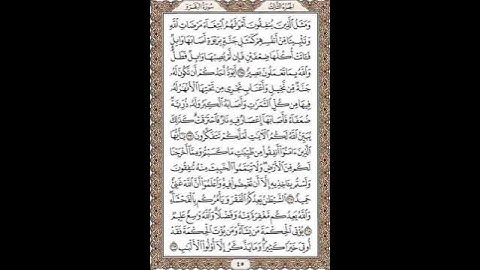 الجزء الثالث
سورة البقرة
وَمَثَلُ ٱلَّذِينَ يُنفِقُونَ أَمْوَٰلَهُمُ ٱبْتِغَآءَ مَرْضَاتِ ٱللَّهِ
وَتَثْبِيتًا مِّنْ أَنفُسِهِمْ كَمَثَلِ جَنَّةٍۭ بِرَبْوَةٍ أَصَابَهَا وَابِلٌ
فَـَٔاتَتْ أُكُلَهَا ضِعْفَيْنِ فَإِن لَّمْ يُصِبْهَا وَابِلٌ فَطَلٌّ
وَٱللَّهُ بِمَا تَعْمَلُونَ بَصِيرٌ ٢٦٥ أَيَوَدُّ أَحَدُكُمْ أَن تَكُونَ لَهُۥ
جَنَّةٌ مِّن نَّخِيلٍ وَأَعْنَابٍ تَجْرِى مِن تَحْتِهَا ٱلْأَنْهَٰرُ لَهُۥ
فِيهَا مِن كُلِّ ٱلثَّمَرَٰتِ وَأَصَابَهُ ٱلْكِبَرُ وَلَهُۥ ذُرِّيَّةٌ
ضُعَفَآءُ فَأَصَابَهَآ إِعْصَارٌ فِيهِ نَارٌ فَٱحْتَرَقَتْ كَذَٰلِكَ
يُبَيِّنُ ٱللَّهُ لَكُمُ ٱلْـَٔايَٰتِ لَعَلَّكُمْ تَتَفَكَّرُونَ ٢٦٦ يَٰٓأَيُّهَا
ٱلَّذِينَ ءَامَنُوٓا۟ أَنفِقُوا۟ مِن طَيِّبَٰتِ مَا كَسَبْتُمْ وَمِمَّآ أَخْرَجْنَا
لَكُم مِّنَ ٱلْأَرْضِ وَلَا تَيَمَّمُوا۟ ٱلْخَبِيثَ مِنْهُ تُنفِقُونَ
وَلَسْتُم بِـَٔاخِذِيهِ إِلَّآ أَن تُغْمِضُوا۟ فِيهِ وَٱعْلَمُوٓا۟ أَنَّ ٱللَّهَ غَنِىٌّ
حَمِيدٌ ٢٦٧ ٱلشَّيْطَٰنُ يَعِدُكُمُ ٱلْفَقْرَ وَيَأْمُرُكُم بِٱلْفَحْشَآءِ
وَٱللَّهُ يَعِدُكُم مَّغْفِرَةً مِّنْهُ وَفَضْلًا وَٱللَّهُ وَٰسِعٌ عَلِيمٌ ٢٦٨
يُؤْتِى ٱلْحِكْمَةَ مَن يَشَآءُ وَمَن يُؤْتَ ٱلْحِكْمَةَ فَقَدْ
أُوتِىَ خَيْرًا كَثِيرًا وَمَا يَذَّكَّرُ إِلَّآ أُو۟لُوا۟ ٱلْأَلْبَٰبِ ٢٦٩
٤٥